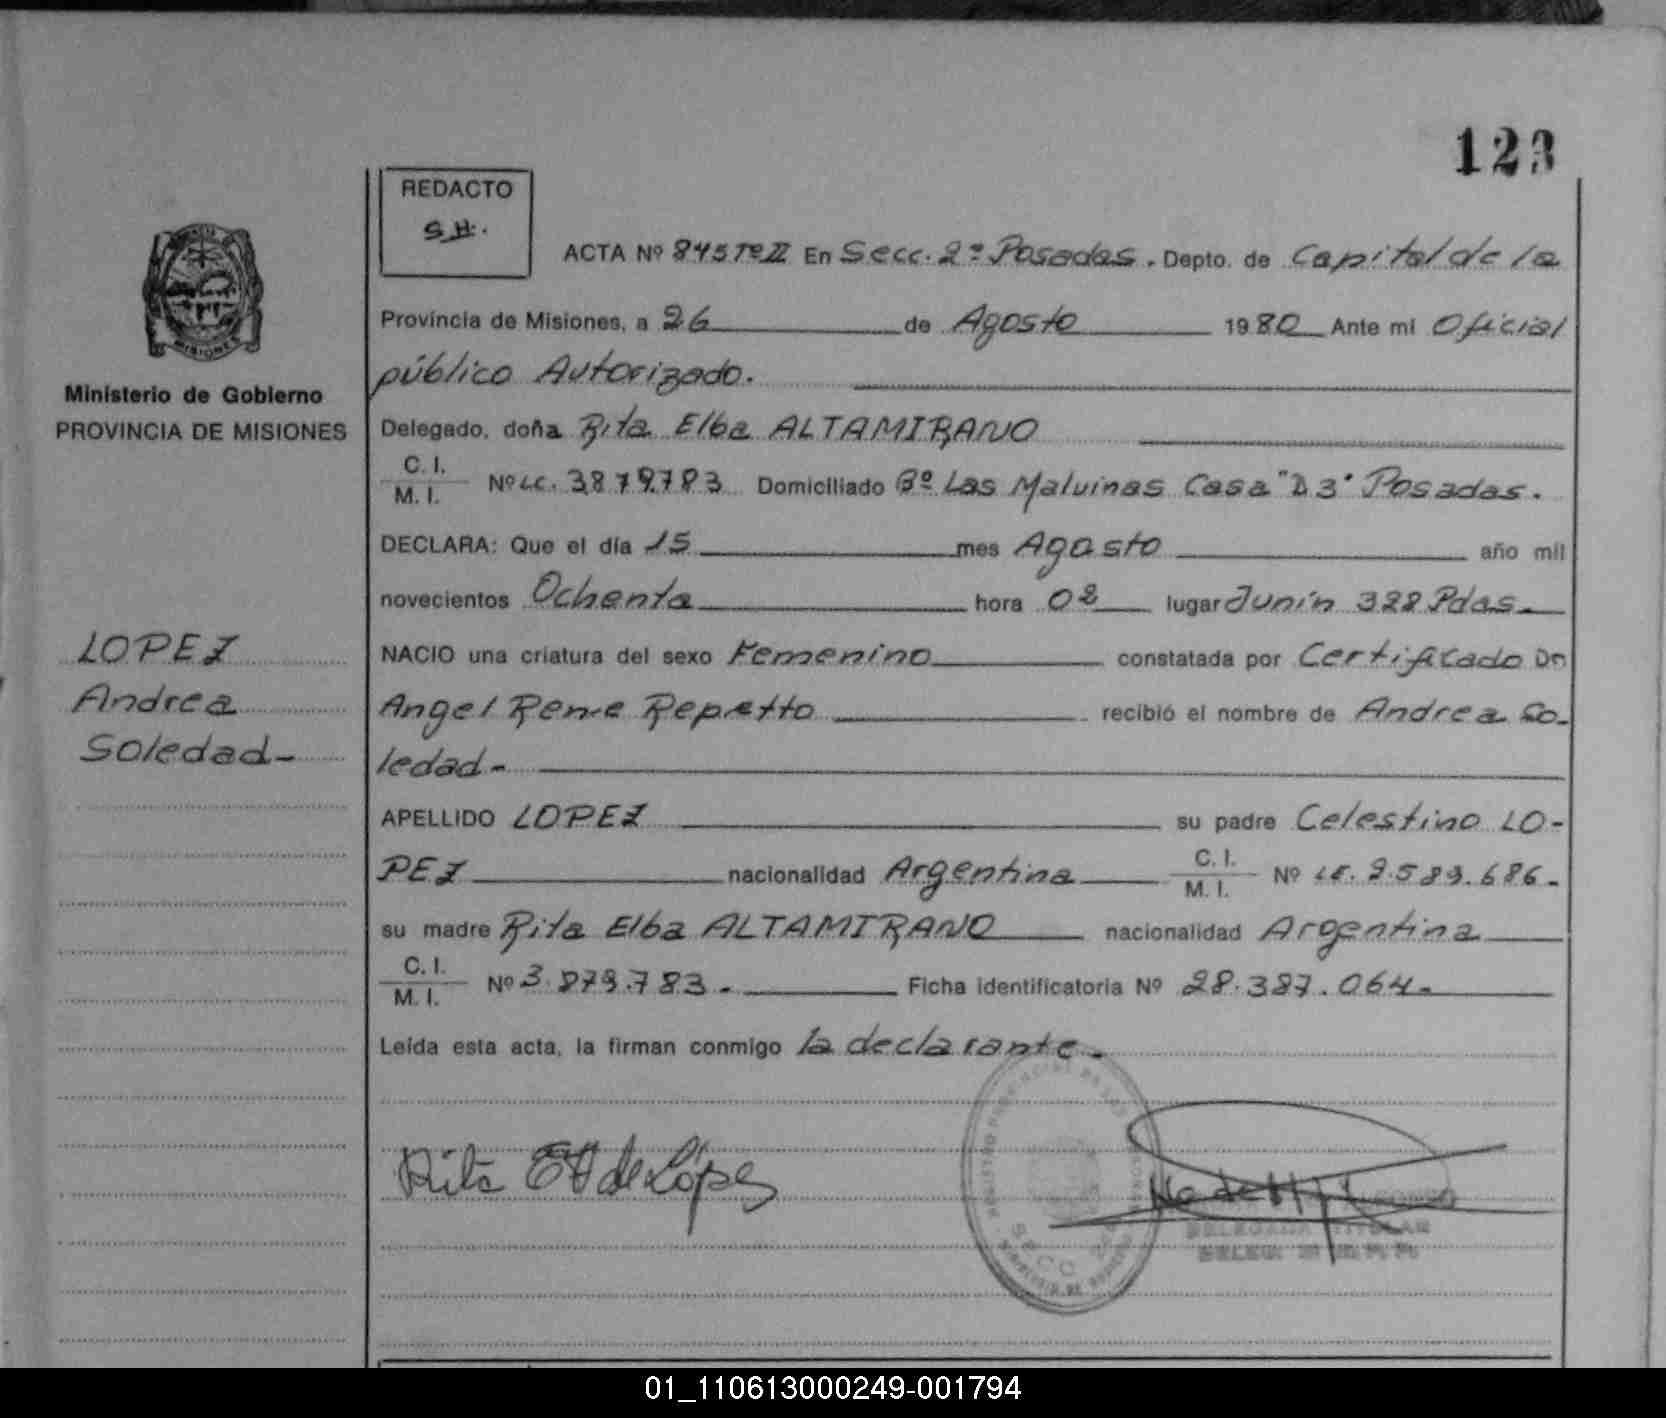 123
REDACTO
S.H.
ACTA Nº 845 Tº II En Secc. 2ª Posadas. Depto. de Capital de la
Provincia de Misiones, a 26 de Agosto 1980 Ante mi Oficial
público Autorizado.
Delegado, doña Rita Elba ALTAMIRANO
C. I.
M. I. Nº LC. 3.879.783 Domiciliado Bº Las Malvinas Casa "D 3" Posadas.
DECLARA: Que el día 15 mes Agosto año mil
novecientos Ochenta hora 02 lugar Junín 328 Pdas.
NACIO una criatura del sexo Femenino constatada por Certificado Dr
Angel Rene Repetto recibió el nombre de Andrea So-
ledad-
APELLIDO LOPEZ su padre Celestino LO-
PEZ nacionalidad Argentina C. I. M. I. Nº LE. 2.589.686.
su madre Rita Elba ALTAMIRANO nacionalidad Argentina
C. I.
M. I. Nº 3.879.783. Ficha identificatoria Nº 28.387.064.
Leída esta acta, la firman conmigo la declarante.
Rita EA de López
DELEGADA TITULAR
MISIONES
Ministerio de Gobierno
PROVINCIA DE MISIONES
LOPEZ
Andrea
Soledad-
01_110613000249-001794